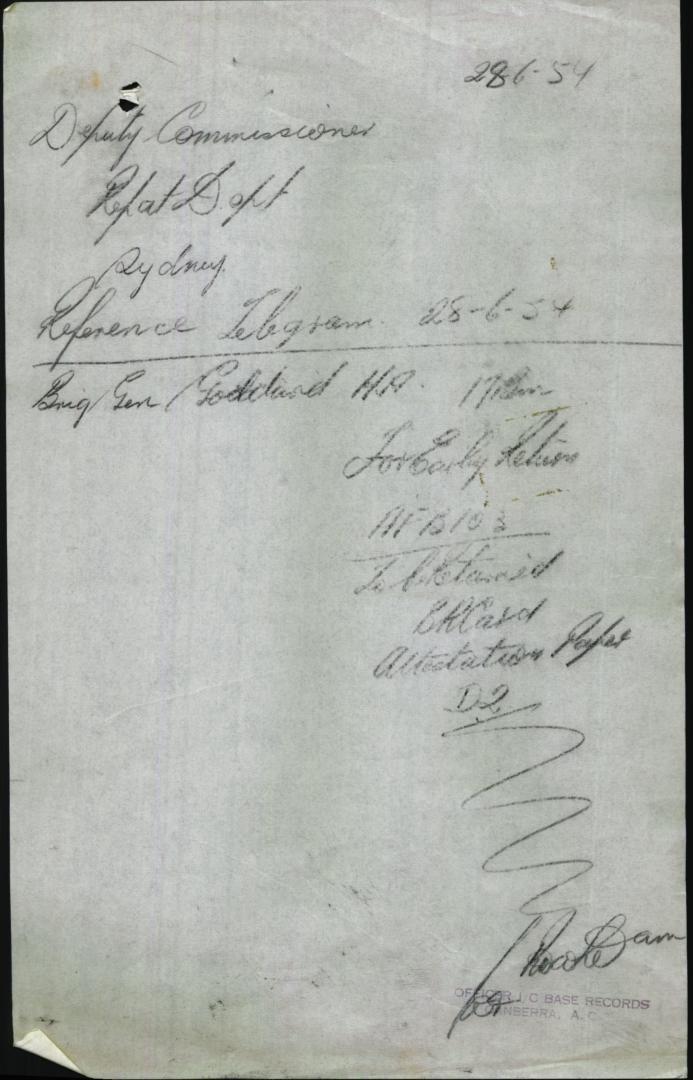 28-6-54
Deputy Commissioner
Repat Dept
Sydney.
Reference Telegram. 28-6-54
Brig Gen Goddard H.A. 17 Bn
For Early Return
AF B103
To be Retained
BRCard
Attestation Paper
D2
for
OFFICER I/C BASE RECORDS
CANBERRA, A.C.